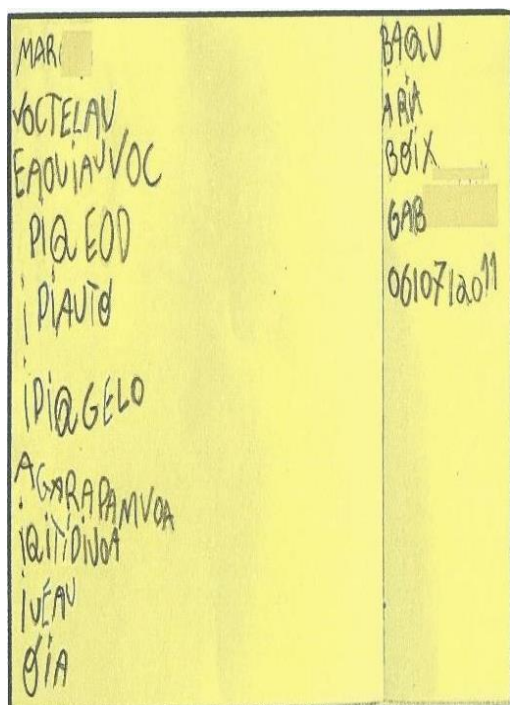 MAR
VOCTELAV
EAQUIAUVOC
PIQEOD
IPIAUTO
IPIQGELO
AGARAPAMVOA
IQITIDIVOA
IVEAU
OIA
BAQU
ARIA
BOIX
GAB
0610712011